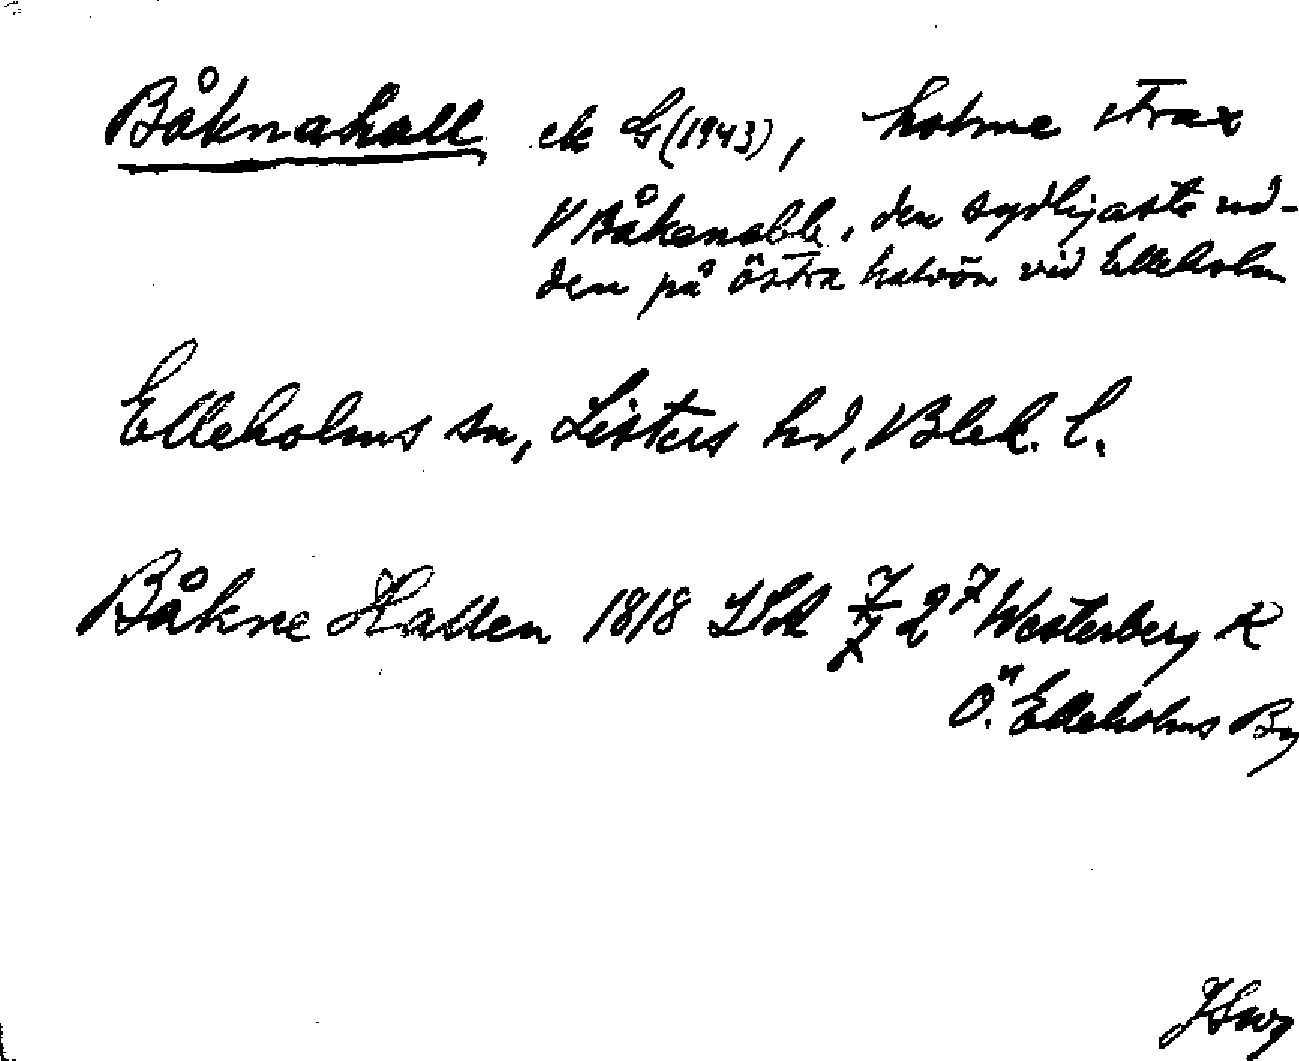 Båknahall ek G(1943), holme strax
V Båkenabb, den sydligaste ud-
den på östra halvön vid Elleholm
Elleholms sn, Listers hd, Blek. l.
Båkne Hallen 1818 LSA 2⁷ Westerberg K
Ö. Elleholms By